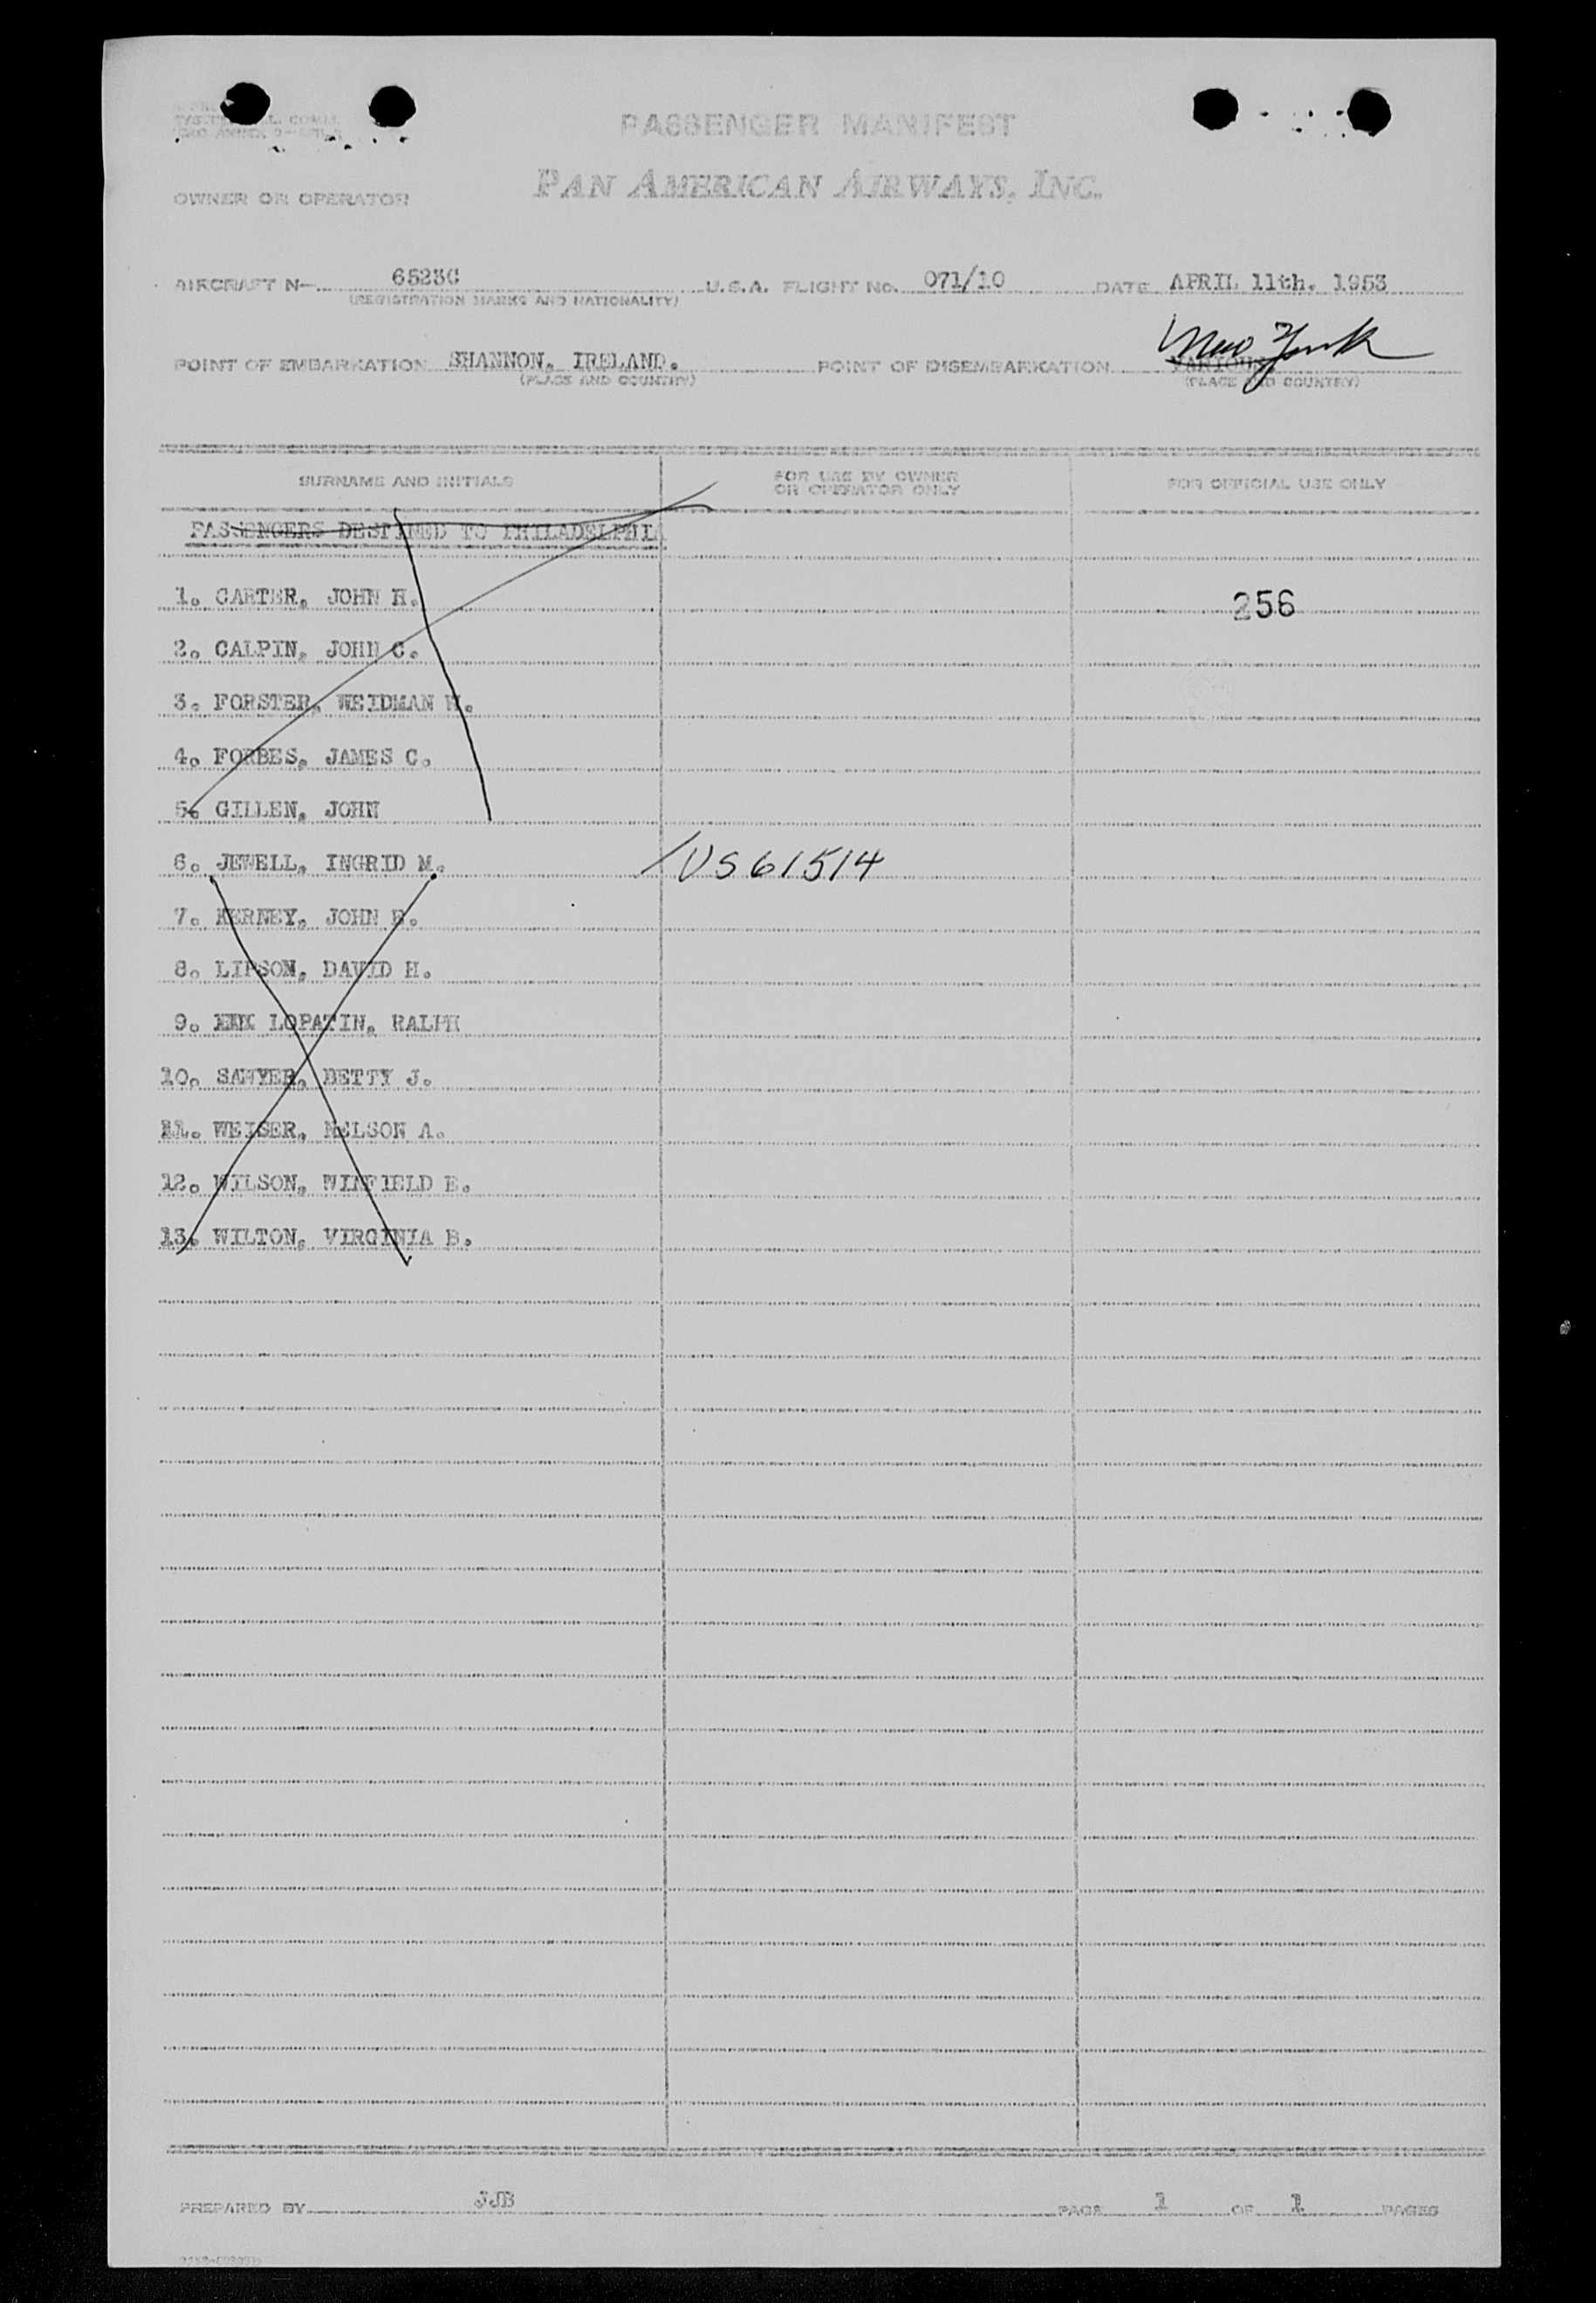 PASSENGER MANIFEST
OWNER OR OPERATOR PAN AMERICAN AIRWAYS, INC.
AIRCRAFT N- 6523C U.S.A. FLIGHT NO. 071/10 DATE APRIL 11th. 1953
(REGISTRATION MARKS AND NATIONALITY)
New York
POINT OF EMBARKATION SHANNON, IRELAND. POINT OF DISEMBARKATION VARIOUS
(PLACE AND COUNTRY) (PLACE AND COUNTRY)
SURNAME AND INITIALS FOR USE BY OWNER OR OPERATOR ONLY FOR OFFICIAL USE ONLY
PASSENGERS DESTINED TO PHILADELPHIA
1. CARTER, JOHN H. 256
2. CALPIN, JOHN C.
3. FORSTER, WEIDMAN H.
4. FORBES, JAMES C.
5. GILLEN, JOHN
6. JEWELL, INGRID M. /US61514
7. KERNEY, JOHN E.
8. LIPSON, DAVID H.
9. LOPATIN, RALPH
10. SAWYER, BETTY J.
11. WEISER, NELSON A.
12. WILSON, WINFIELD E.
13. WILTON, VIRGINIA B.
PREPARED BY JJB PAGE 1 OF 1 PAGES